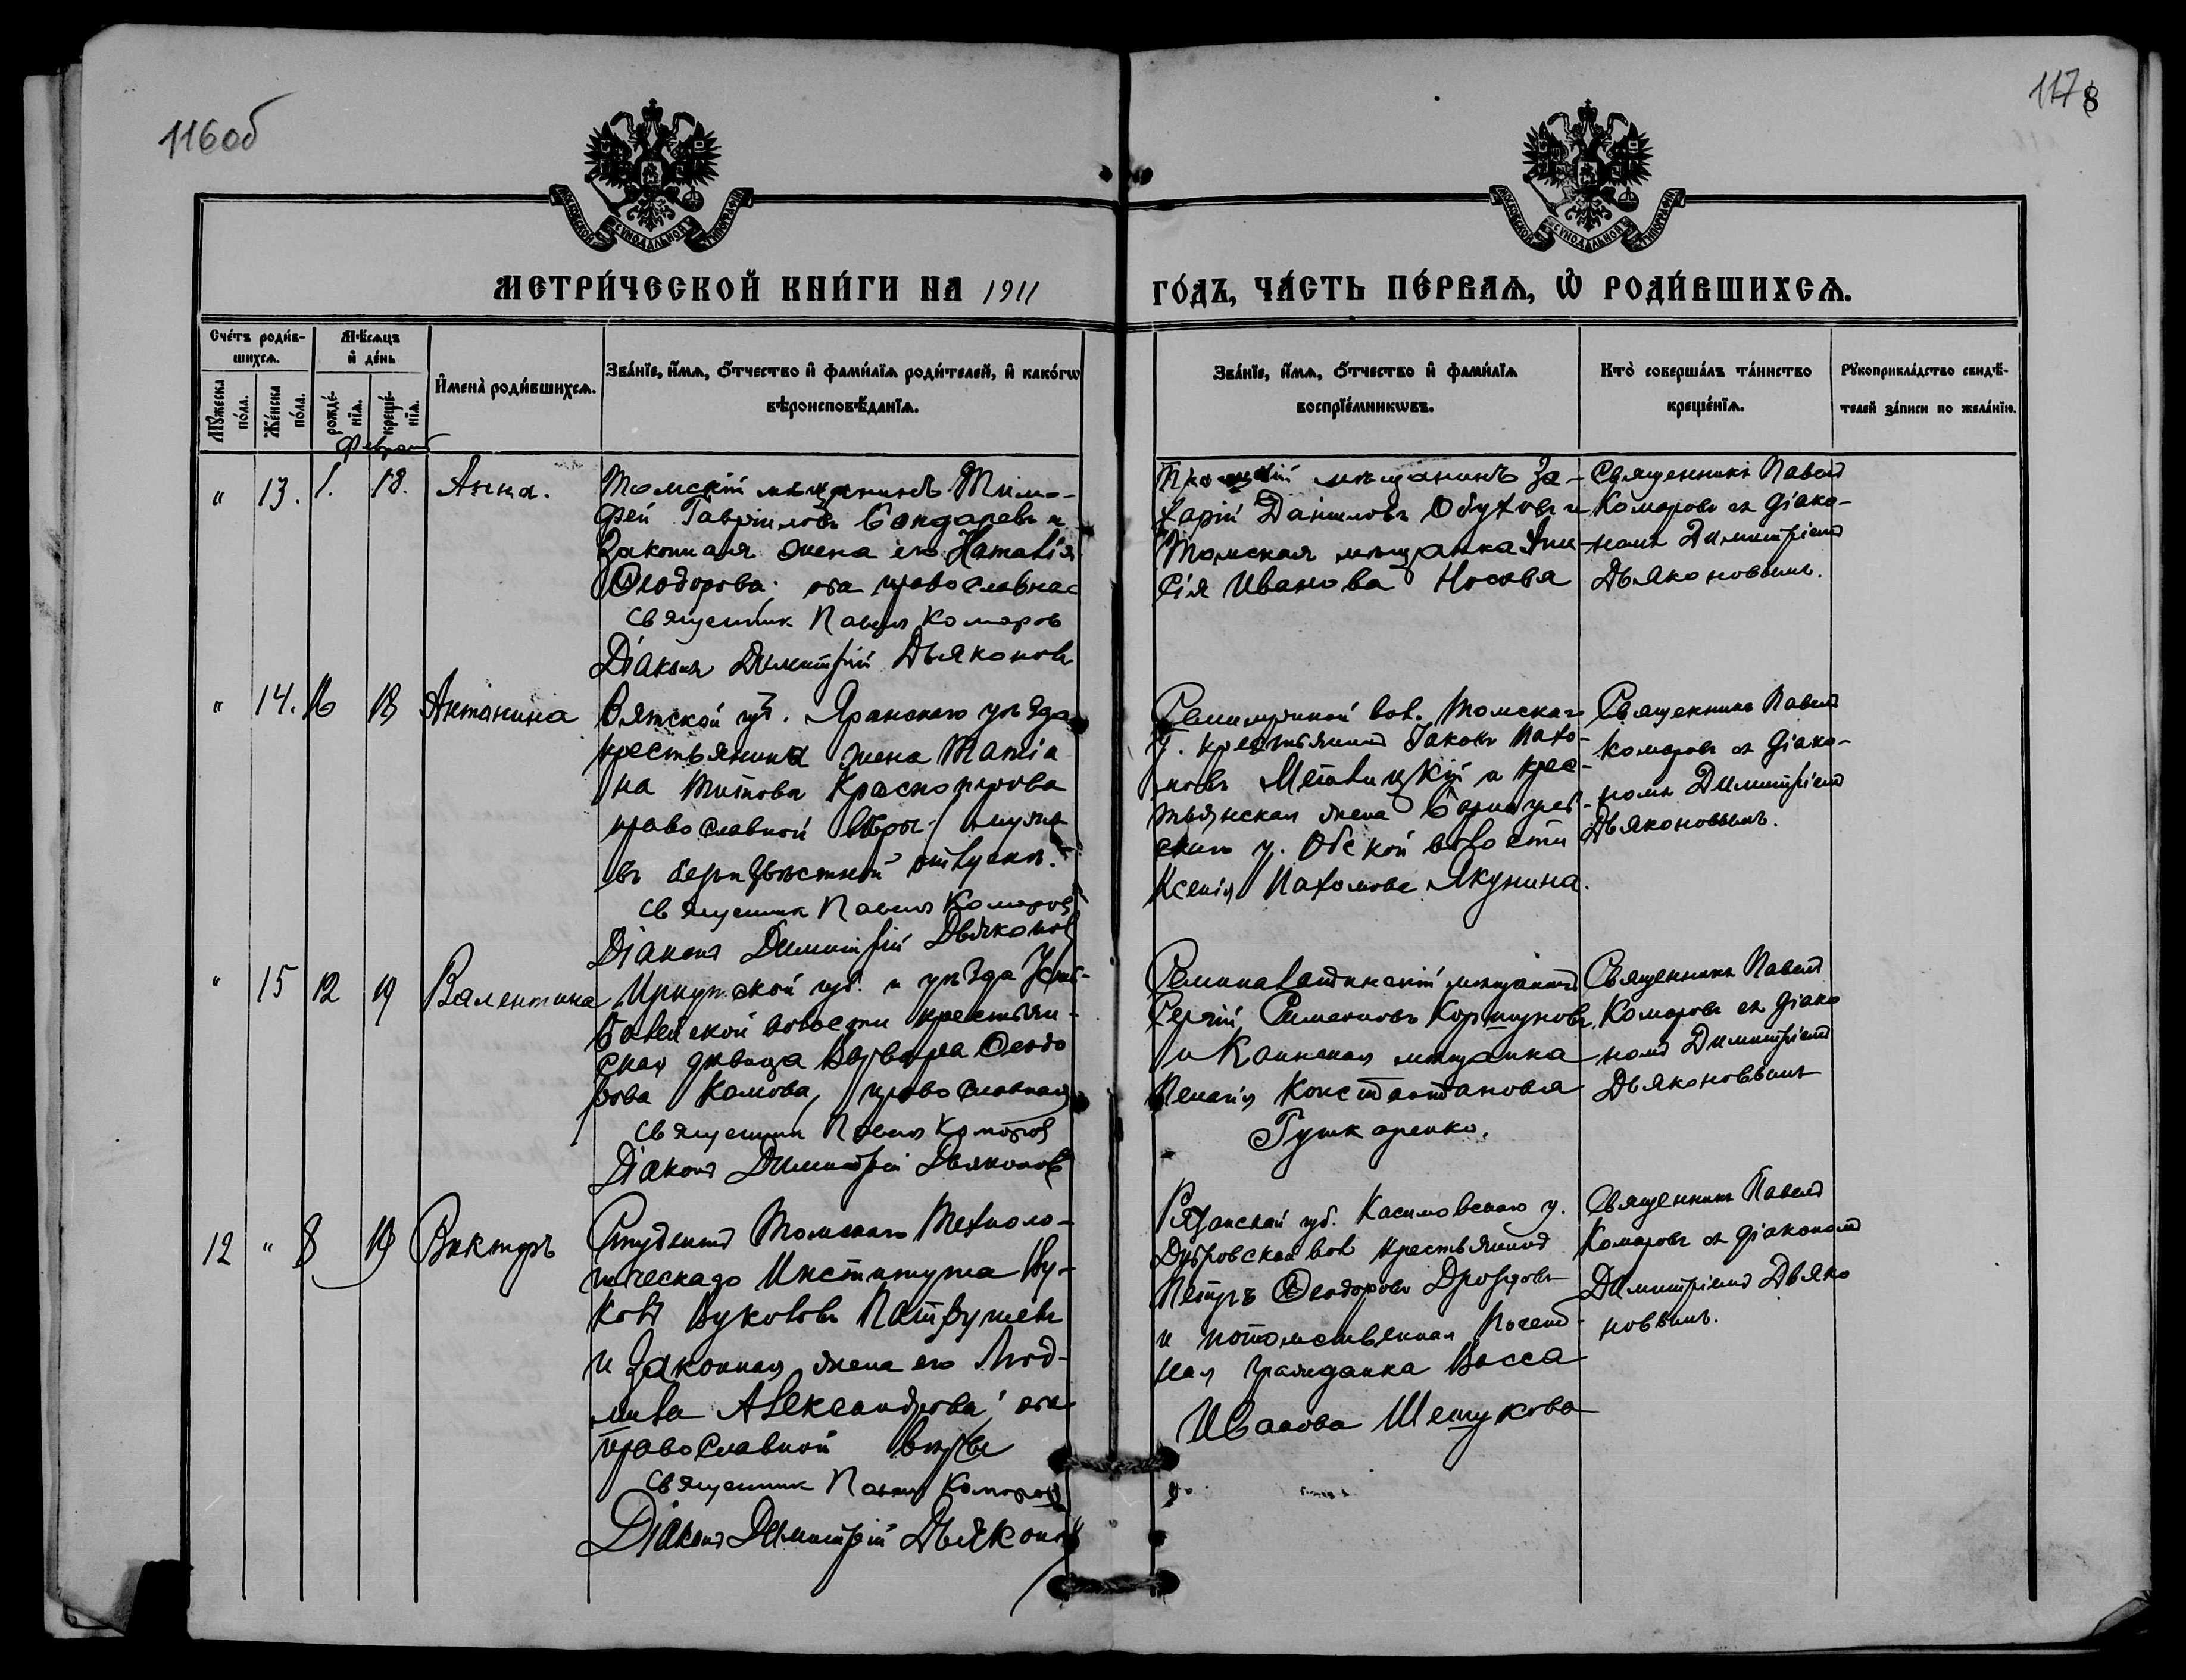 116об
1178
МОСКОВСКОЙ СѴНОДАЛЬНОЙ ТИПОГРАФІИ
МОСКОВСКОЙ СѴНОДАЛЬНОЙ ТИПОГРАФІИ
МЕТРИ́ЧЕСКОЙ КНИ́ГИ НА 1911
ГО́ДЪ, ЧА́СТЬ ПЕ́РВАѦ, Ѡ҆ РОДИ́ВШИХСѦ.
Сче́тъ роди́в-
шихсѧ.
Мꙋ́жеска
по́ла.
Же́нска
по́ла.
Мѣ́сѧцъ
и҆ де́нь
рожде́-
нїѧ.
креще́-
нїѧ.
И҆мена̀ роди́вшихсѧ.
Зва́нїе, и҆́мѧ, ѻ҆́тчество и҆ фами́лїѧ роди́телей, и҆ како́гѡ
вѣроисповѣ́данїѧ.
Зва́нїе, и҆́мѧ, ѻ҆́тчество и҆ фами́лїѧ
воспрїе́мникѡвъ.
Кто̀ соверша́лъ та́инство
креще́нїѧ.
Рꙋкоприкла́дство свидѣ́-
телей за́писи по жела́нїю.
Февраль
" 13. 1. 18. Анна.
Томскій мѣщанинъ Тимо-
фей Гавріиловъ Бондаревъ и
законная жена его Наталія
Ѳеодорова; оба православнае
Священник Павел Комаров
Діаконъ Димитрій Дьяконовъ
мѣщанинъ За-
харій Даніиловъ Обуховъ и
Томская мѣщанка Ани-
сія Иванова Носова
Священникъ Павелъ
Комаровъ съ діако-
номъ Димитріемъ
Дьяконовымъ.
" 14. 16 18 Антонина
Вятской губ. Яранскаго уѣзда
крестьянина жена Татіа
на Титова Красноперова
православной вѣры; мужъ
въ безъизвѣстной отлучкѣ.
Священник Павел Комаров
Діаконъ Димитрій Дьяконов
Семилужной вол. Томскаго
у. крестьянинъ Іаковъ Пахо-
мовъ и крес-
тьянская жена Барнауль-
скаго у. Обской волости
Ксенія Пахомова Якунина.
Священникъ Павелъ
Комаровъ съ діако-
номъ Димитріемъ
Дьяконовымъ.
" 15 12 19 Валентина
Иркутской губ. и уѣзда Усть-
Балейской волости крестьян-
ская дѣвица Варвара Ѳеодо
рова Комова, православная
Священник Павел Комаров
Діаконъ Димитрій Дьяконов
Семипалатинскій мѣщанинъ
Сергій Симеоновъ Коршуновъ
и Каинская мѣщанка
Пелагія Константинова
Гушкаренко.
Священникъ Павелъ
Комаровъ съ діако
номъ Димитріемъ
Дьяконовымъ
12 " 8 19 Викторъ
Студентъ Томскаго Техноло-
гическаго Института Ву-
колъ Вуколовъ Патрушевъ
и законная жена его Люд-
мила Александрова; оба
православной вѣры
Священник Павел Комаров
Діаконъ Димитрій Дьяконовъ
Рязанской губ. Касимовскаго у.
Дубровской вол крестьянинъ
Петръ Ѳеодоровъ Дроздовъ
и потомственная Почет-
ная гражданка Васса
Иванова Шешукова
Священникъ Павелъ
Комаровъ съ діакономъ
Димитріемъ Дьяко
новымъ.